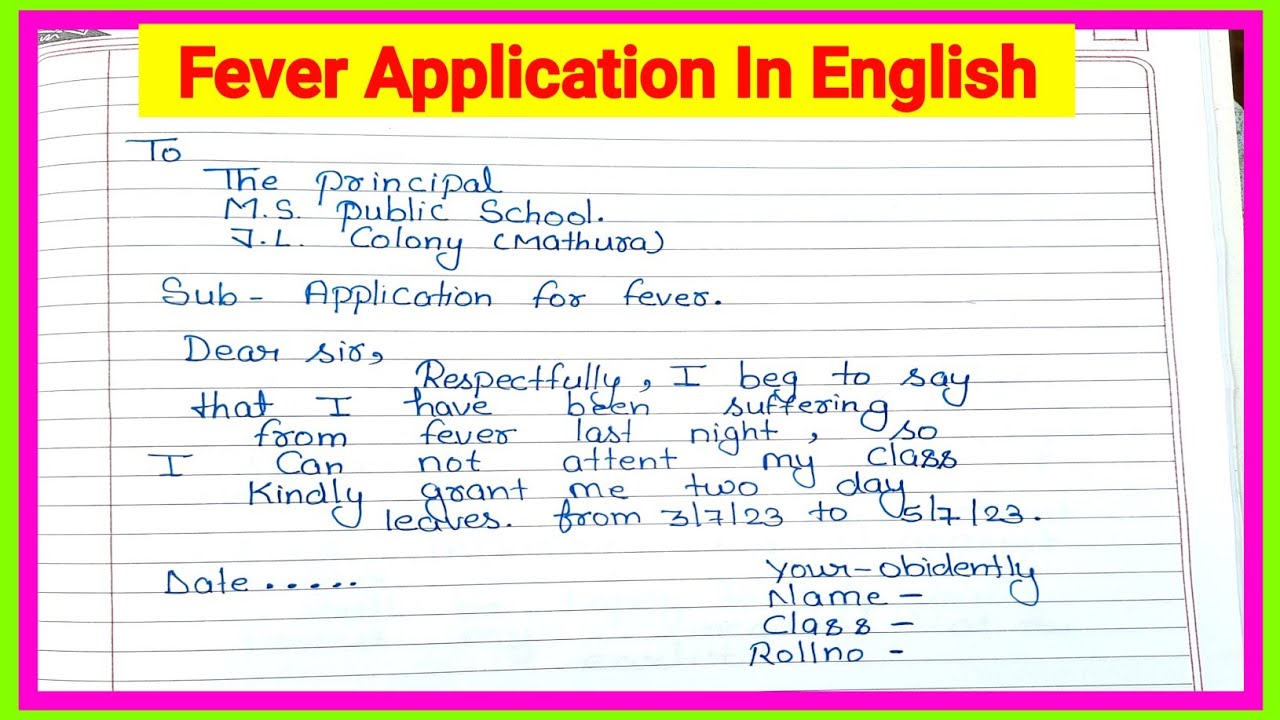 Fever Application In English
To
The principal
M.S. public School.
J.L. Colony (Mathura)
Sub- Application for fever.
Dear sir,
Respectfully, I beg to say
that I have been suffering
from fever last night, so
I Can not attent my class
Kindly grant me two day
leaves. from 3/7/23 to 5/7/23.
Date.....
your-obidently
Name -
Class -
Rollno -